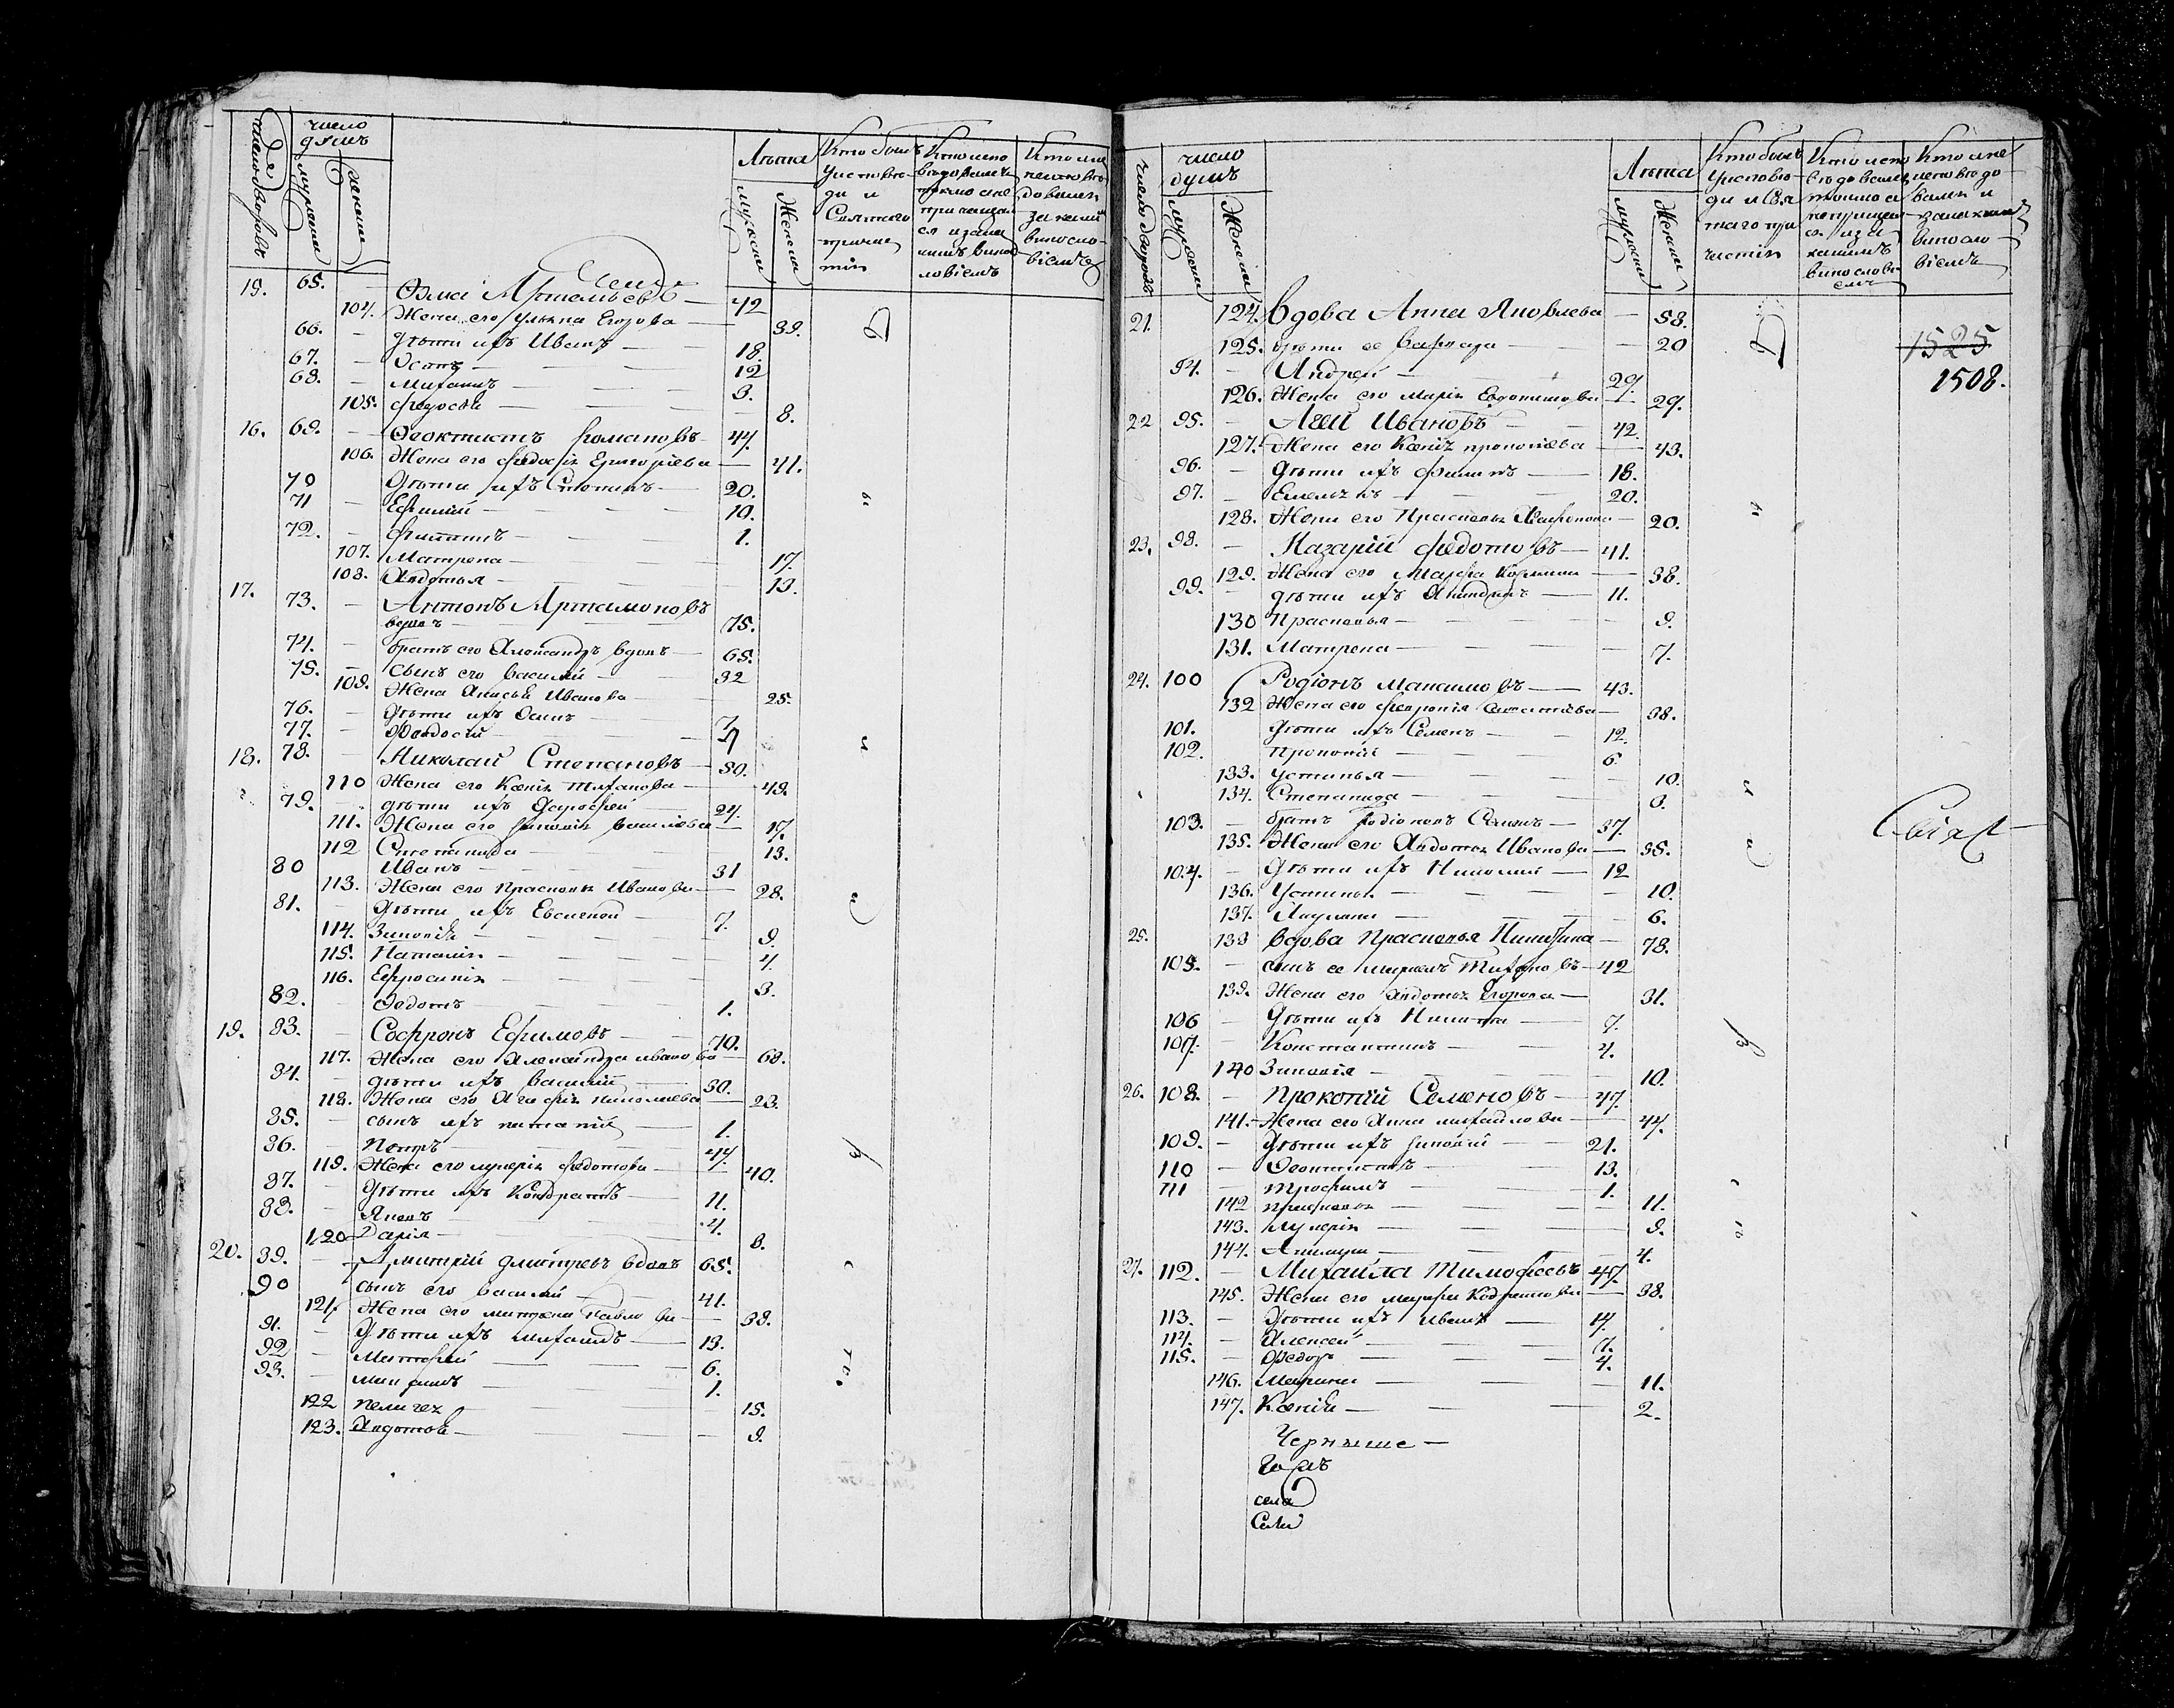 число дворовъ
число душъ
мужеска
женска
Лѣта
мужски
Женски
Кто былъ у исповѣди и Святаго причастія
Кто исповѣдовался токмо а не причащался и за какимъ винословіемъ
Кто не исповѣдовался и за какимъ винословіемъ
15. 65. — Ѳома Артемьевъ — 42
104. Жена его Ульяна Егорова — 39.
66. — дѣти ихъ Иванъ — 18.
67. — Осипъ — 12
68. — Михаилъ — 3.
105. Федосья — 8.
16. 69. — Ѳеоктистъ Романовъ 44.
106. Жена его Федосія Григоріева — 41.
70 дѣти ихъ 20.
71 — Ефимій — 10.
72. — Филиппъ — 1.
107. Матрена — 17.
108. Авдотья — 13.
17. 73. — Антонъ Артамоновъ
вдовъ — 75.
74. — братъ его Александръ вдовъ — 65.
75. — сынъ его Василий — 32
109. Жена Анисья Иванова — 25.
76. — дѣти ихъ Осипъ — 7.
77. — Ѳеодосій —
18. 78. — Николай Степановъ — 50.
110 Жена его Ксенія Тиханова — 49.
79. — дѣти ихъ Дорофей — 24.
111. Жена его Василіева — 17.
112 Степанида — 13.
80 Иванъ — 31
113. Жена его Прасковья Иванова — 28.
81. — дѣти ихъ Евсигней — 7.
114. Зиновія — 9.
115. Наталія — 4.
116. Ефросинія — 3.
82. — Федотъ — 1.
19. 83. — Софронъ Ефимовъ — 70.
117. Жена его Александра Иванова — 68.
84. — дѣти ихъ Василій — 30.
118. Жена его Николаева — 23.
85. — сынъ ихъ — 1.
86. — Петръ — 44.
119. Жена его Лукерія Федотова — 40.
87. — дѣти ихъ Кондратъ — 11.
88. — Яковъ — 4.
120 Дарія — 8.
20. 89. — Дмитрій Дмитревъ вдовъ 65.
90 сынъ его Василій — 41.
121. Жена его Матрена Павлова — 39.
91. — дѣти ихъ Михаилъ — 13.
92 — 6.
93. — 1.
122 Пелагея 15.
123. Авдотья — 9.
число дворовъ
число душъ
мужска
Женска
Лѣта
мужски
Женски
Кто былъ у исповѣди и Святаго причастія
Кто исповѣдовался токмо а не причащался и за какимъ винословіемъ
Кто не исповѣдовался и за какимъ винословіемъ
21. 124. вдова Анна Яковлева — 58.
125. дѣти ее Варвара — 20
94. — Андрей — 29.
126. Жена его Марія Евдокимова — 29.
1525
1508.
22 95. — Агей Ивановъ — 42.
127. Жена его Ксенія Прокопіева — 43.
96. — дѣти ихъ Филипъ — 18.
97. — Емельянъ — 20.
128. Жена его Прасковья 20.
23. 98. — Назарій Федотовъ — 41.
129. Жена его Марфа Козмина — 38.
99. — дѣти ихъ — 11.
130 Прасковья — 9.
131. Матрена — 7.
24. 100 Родіонъ Максимовъ — 43.
132 Жена его Февронія — 38.
101. дѣти ихъ Семенъ — 12.
102. Прокопій — 6.
133. Устинья — 10.
134. Степанида — 8.
103. — братъ Родіоновъ Семенъ — 37.
Свіяж
135. Жена его Авдотья Иванова — 35.
104. — дѣти ихъ Николай — 12
136. Устинья — 10.
137. Акулина — 6.
25. 138 вдова Прасковья Никитина — 78.
105. — сынъ ее Тихановъ — 42
139. Жена его Авдотья Егорова — 31.
106 — дѣти ихъ Никита — 7.
107. — Константинъ — 4.
140 Зиновія — 10.
26. 108. — Прокопій Семеновъ — 47.
141. — Жена его Анна Михайлова — 44.
109. — дѣти ихъ — 21.
110 — Ѳеоктистъ — 13.
111 — Трофимъ — 1.
142 Прасковья — 11.
143. Лукерія — 9.
144. — 4.
27. 112. — Михайла Тимофеевъ 47.
145. Жена его Марфа Кодратова — 38.
113. — дѣти ихъ Иванъ — 14.
114. — Алексей — 7.
115. — Ѳедоръ — 4.
146. Марина — 11.
147. Ксенія — 2.
Черныше —
села